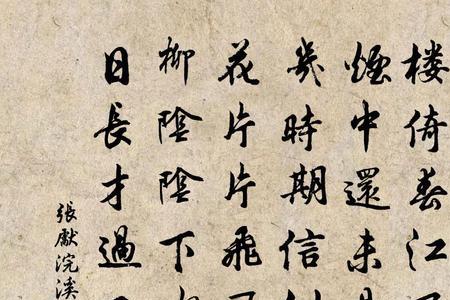 楼倚春江
煙中還未
幾時期信
花片片飛
柳陰陰下
日長才過
張獻浣溪